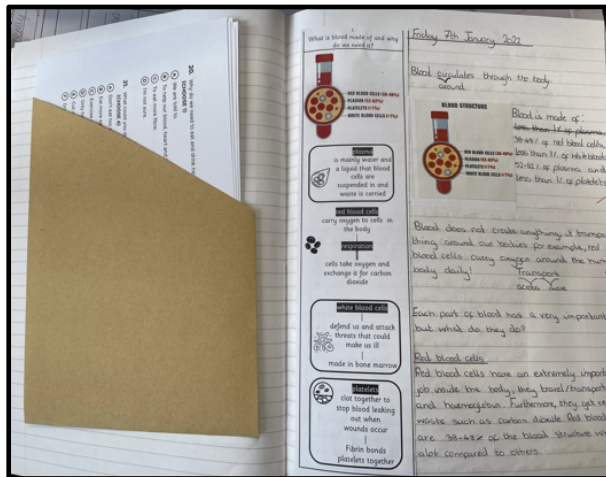 20. Why do we need to eat and drink
(CHOOSE 1)
A We are told to.
B To help our blood, heart and
C To eat more fibre.
D I'm not sure.
21. What could you
(CHOOSE 4)
A Don't eat too
B Eat more
C Exercise
D Only
E Eat
1.
What is blood made of and why
do we need it?
RED BLOOD CELLS (38-48%)
PLASMA (52-62%)
PLATELETS (<1%)
WHITE BLOOD CELLS (<1%)
plasma
is mainly water and
a liquid that blood
cells are
suspended in and
waste is carried
red blood cells
carry oxygen to cells in
the body
respiration
cells take oxygen and
exchange it for carbon
dioxide
white blood cells
defend us and attack
threats that could
make us ill
made in bone marrow
platelets
clot together to
stop blood leaking
out when
wounds occur
Fibrin bonds
platelets together
Friday 7th January 2022
Blood circulates through the body
around
BLOOD STRUCTURE
RED BLOOD CELLS (38-48%)
PLASMA (52-62%)
PLATELETS (<1%)
WHITE BLOOD CELLS (<1%)
Blood is made of:
less than 1% of plasma,
38-48% of red blood cells,
less than 1% of white blood
52-62% of plasma and
less than 1% of platelets
Blood does not create anything, it
thing around our bodies for example, red
blood cells carry oxygen around the
body daily!
Transport
across move
Each part of blood has a very important
but what do they do?
Red blood cells
Red blood cells have an extremely
job inside the body, they travel/transport
and haemoglobin. Furthermore, they get
waste such as carbon dioxide. Red blood
are 38-48% of the blood structure
alot compared to others.